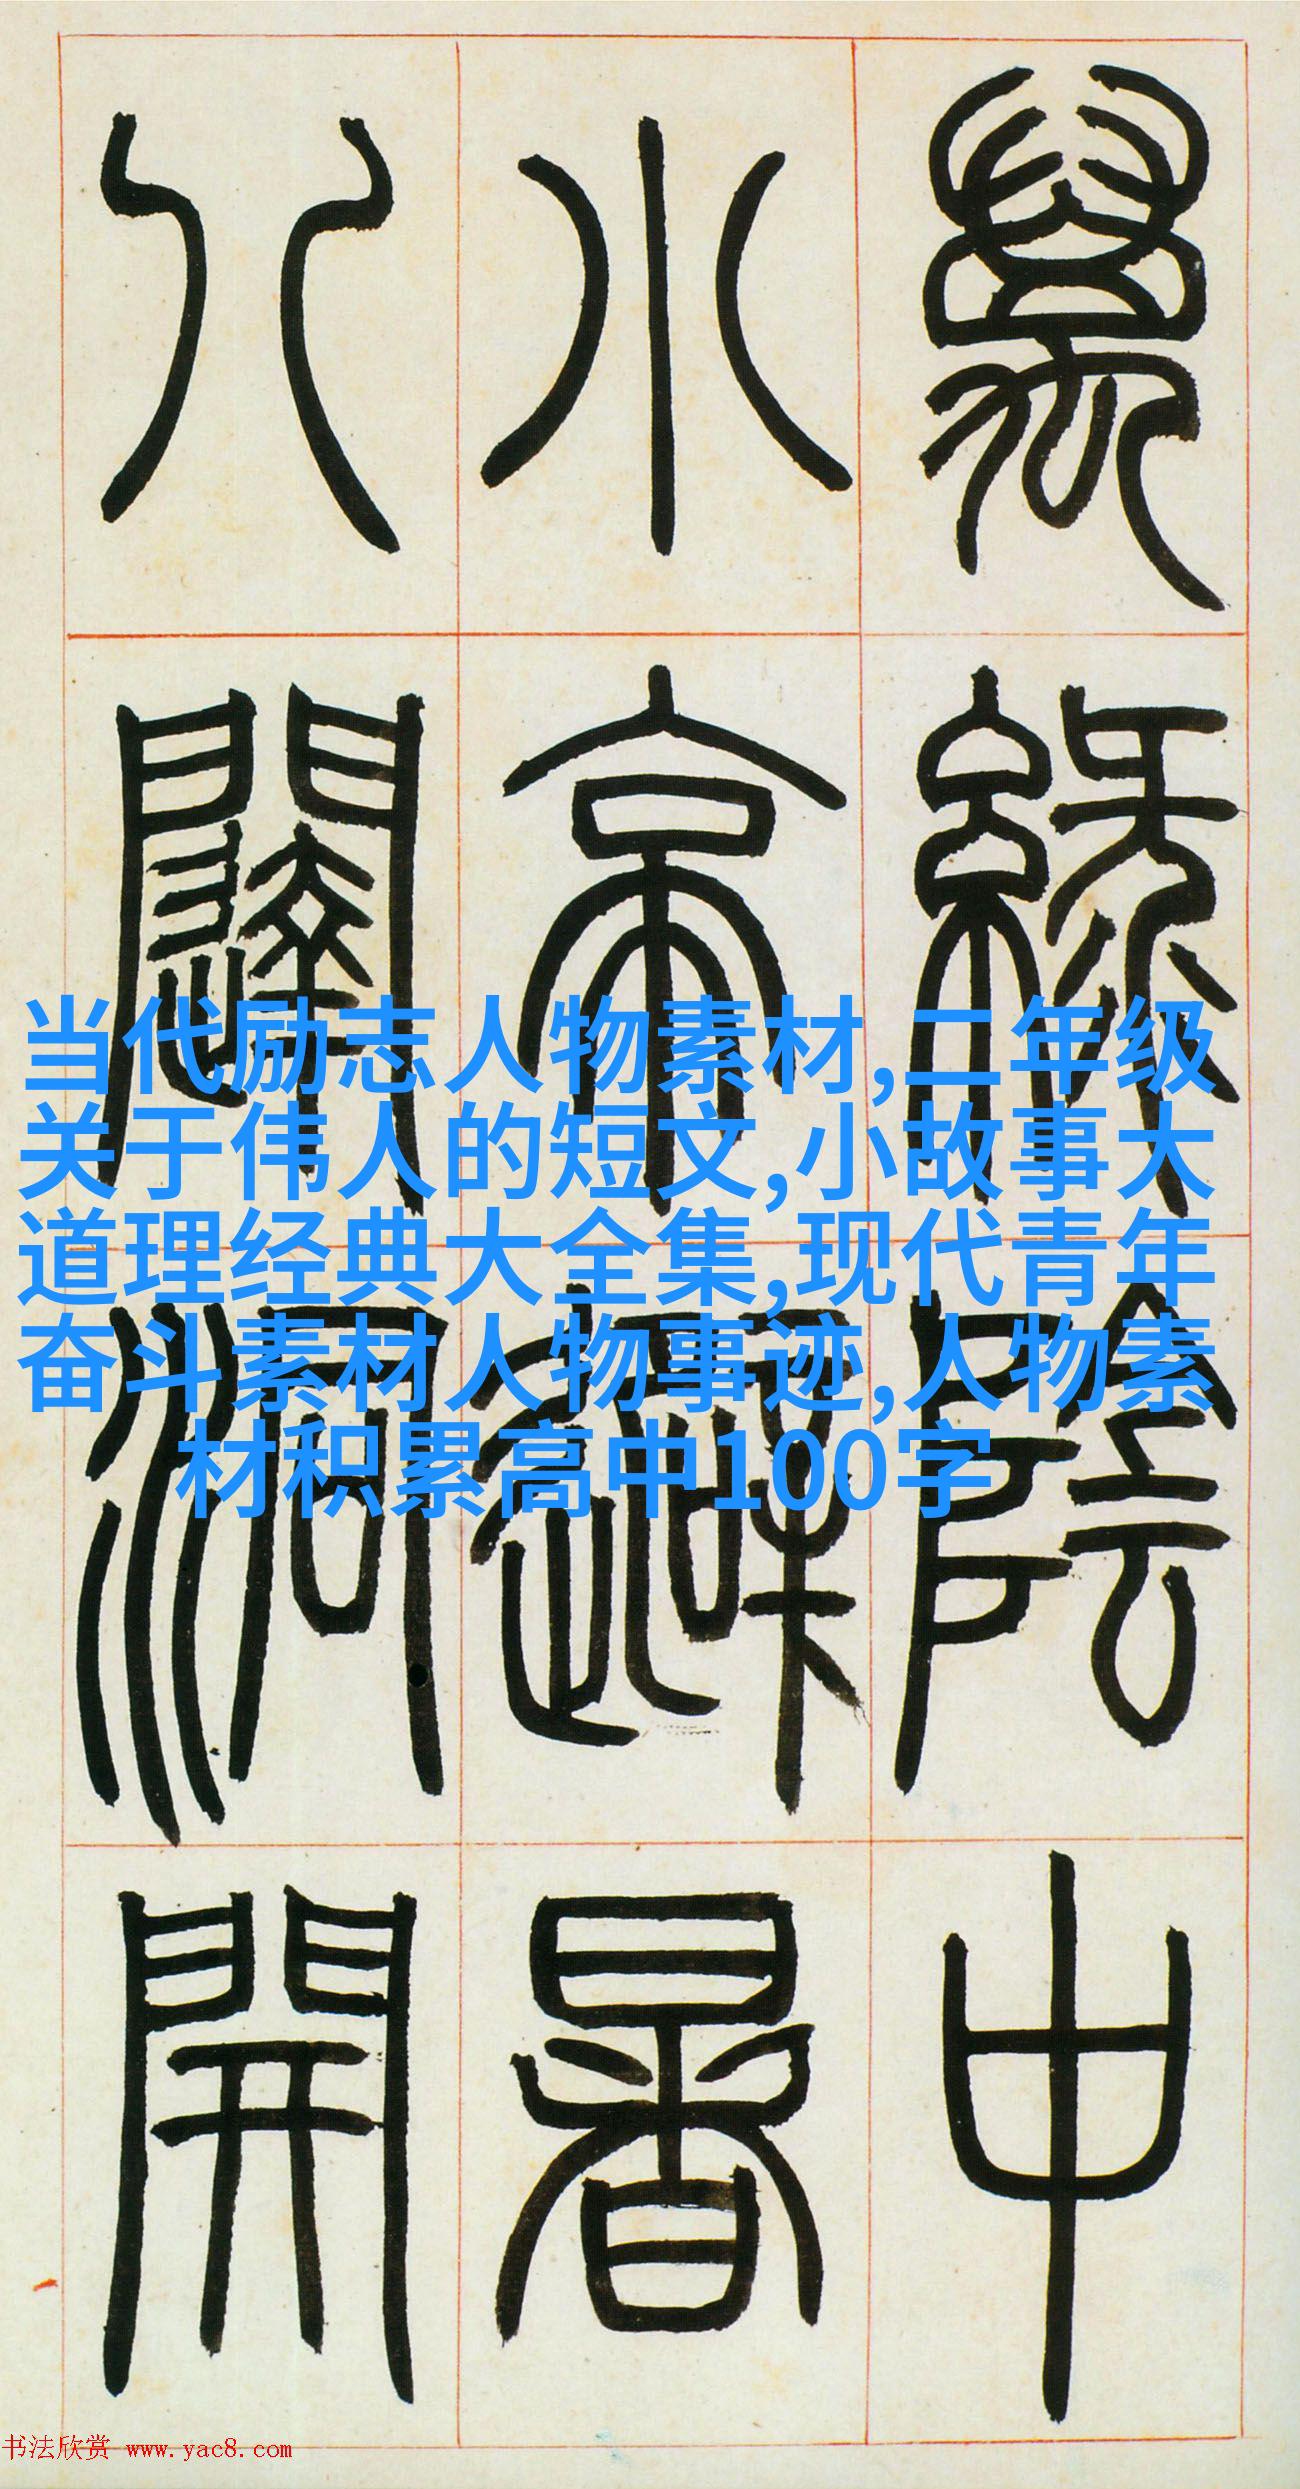 萬綠陰中
小亭避暑
八闥洞開
当代励志人物素材,二年级
关于伟人的短文,小故事大
道理经典大全集,现代青年
奋斗素材人物事迹,人物素
材积累高中100字
书法欣赏 www.yac8.com